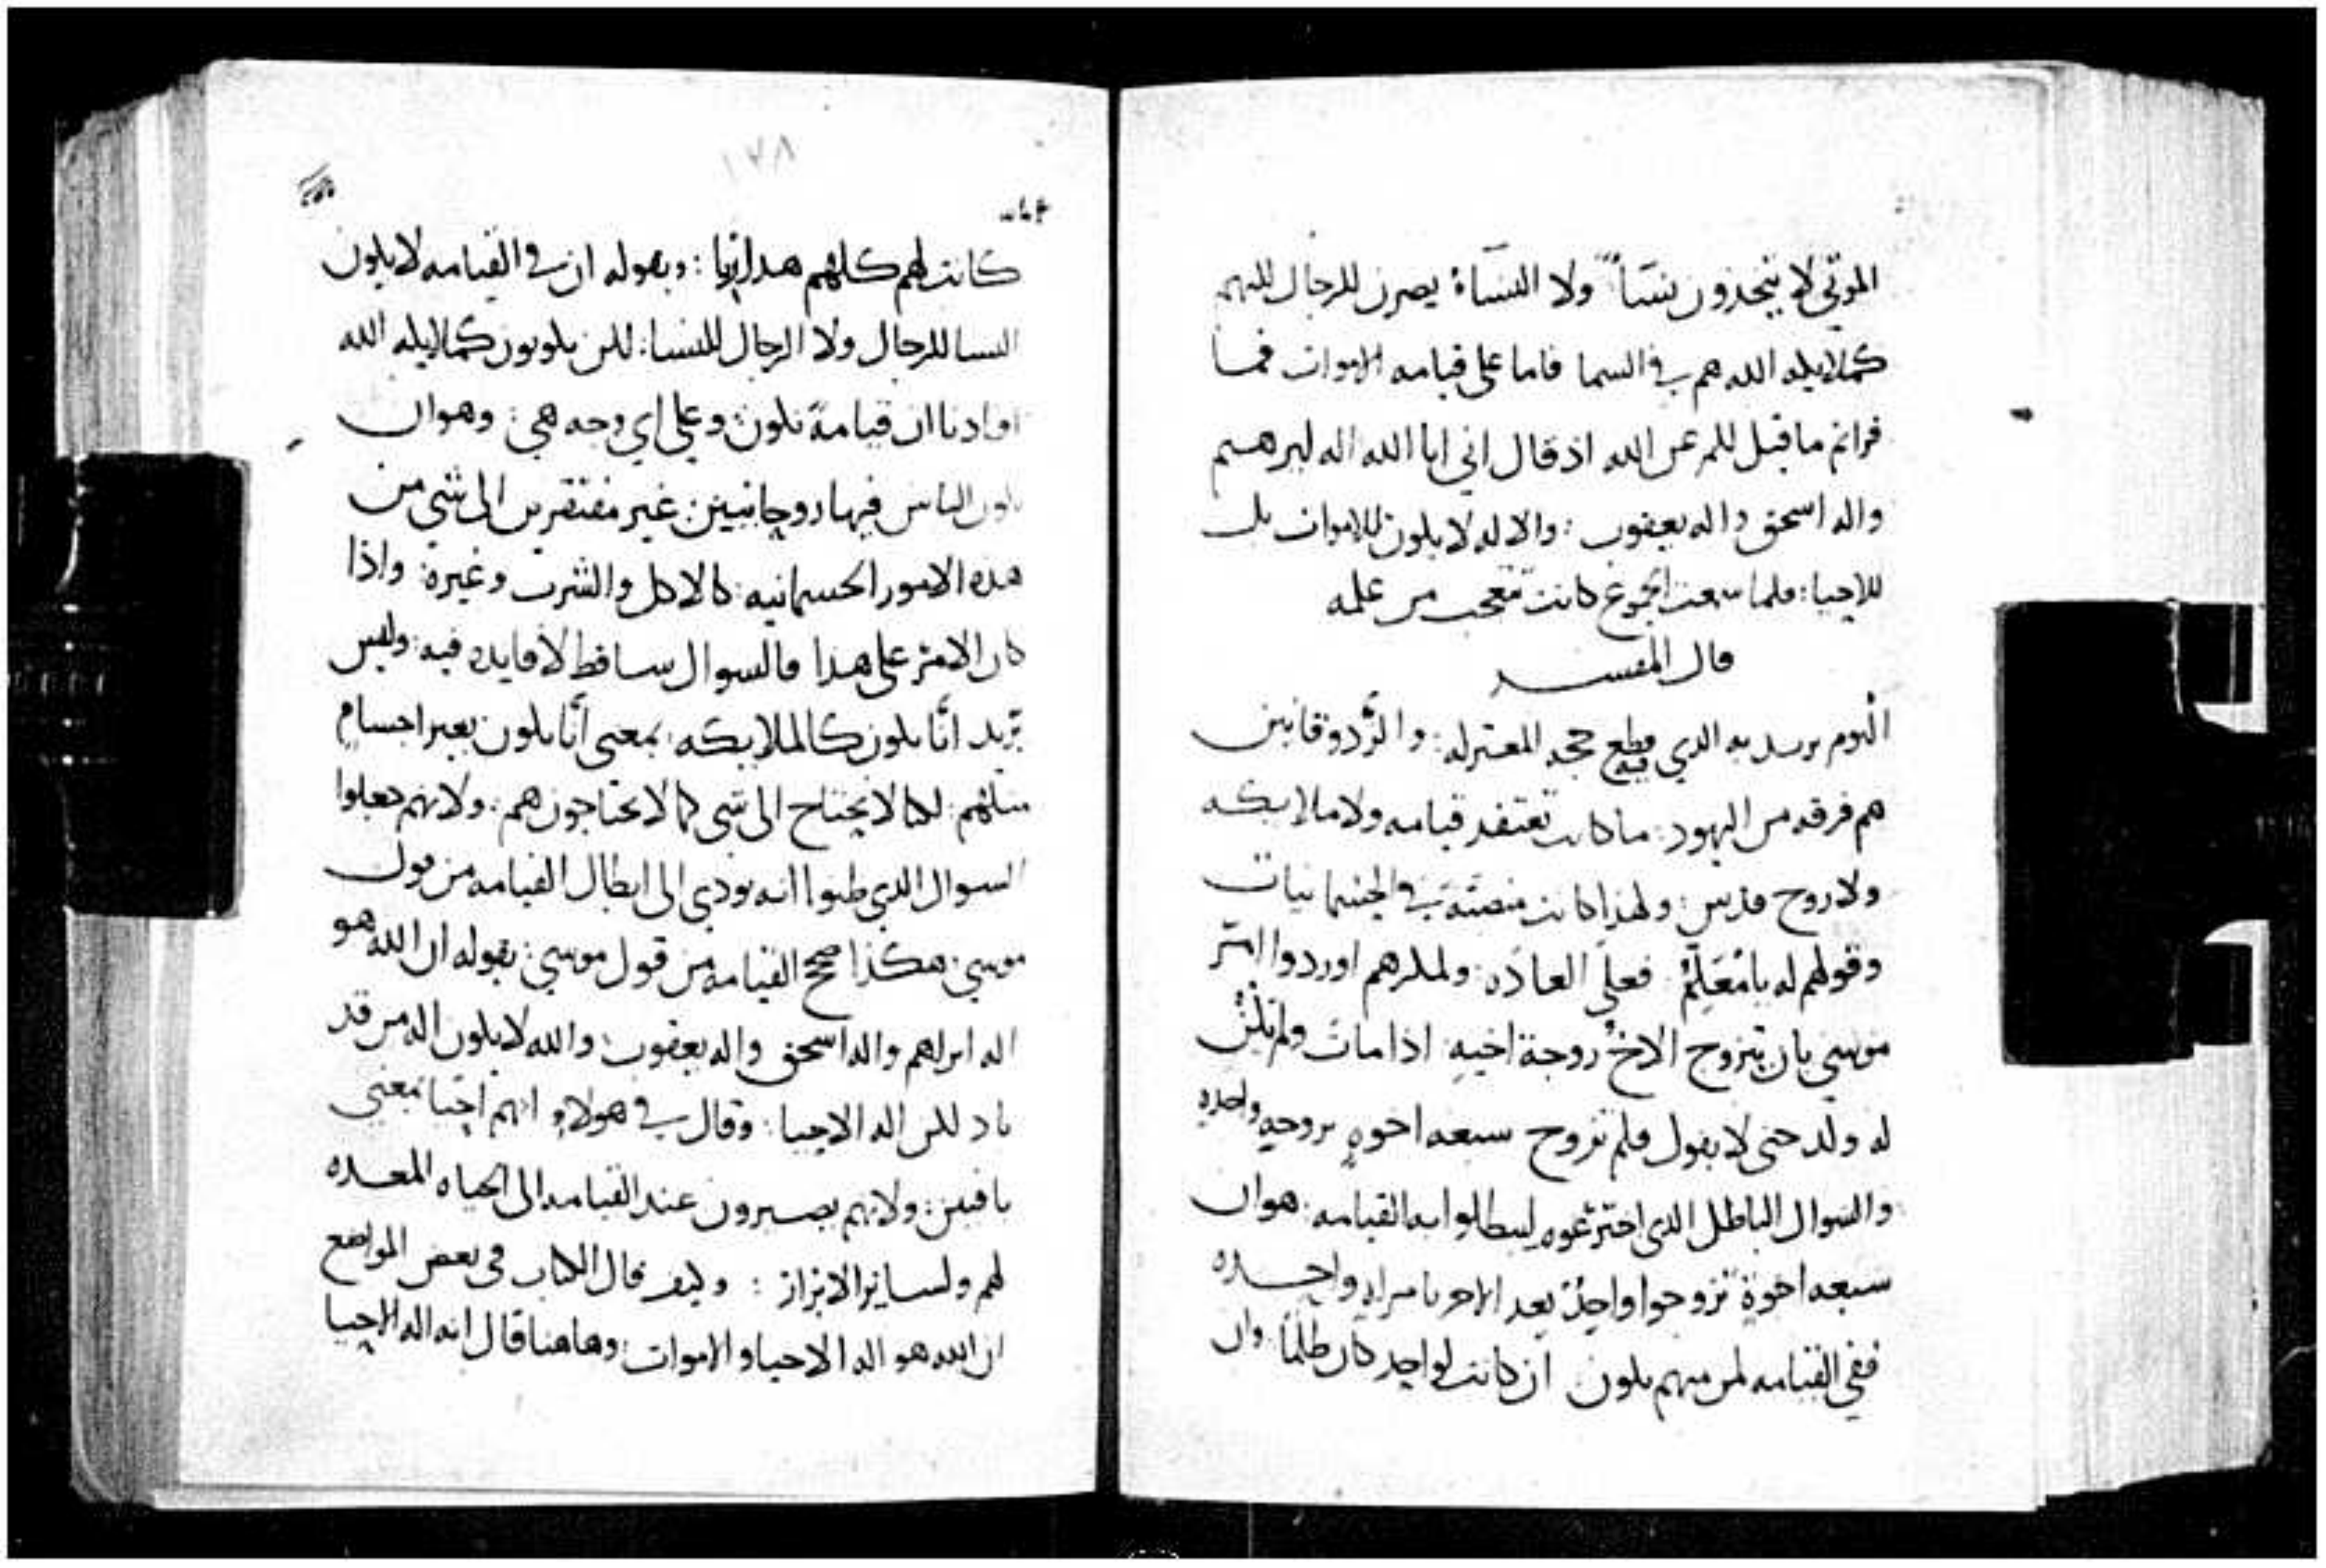 الموتي لا يتخذون نسآً ولا النسآءُ يصرن للرجال للنهم
كملايكه الله هم في السما فاما علي قيامه الاموات فما
قراتم ما قيل للم عن الله اذ قال اني انا الله اله ابرهيم
واله اسحق واله يعقوب : والاله لا يلون للاموات بل
للاحيا : فلما سمعت الجموع كانت تتعجب من علمه
قال المفسر
اليوم يريد به الدي قطع فيه حجه المعتزله : والزدوقانيين
هم فرقه من اليهود : ما كانت تعتقد قيامه ولا ملايكه
ولا روح قدس : ولهذا كانت منصبَّة في الجسمانيات
وقولهم له يا مُعَلِّمُ فعلي العادَه : ولملرهم اوردوا امر
موسي بان يتزوج الاخُ زوجة اخيهِ اذا مات ولم يلن
له ولد حتى لا يقول فلم تزوج سبعه اخوهٍ بزوجهٍ واحده
والسوال الباطل الذي اخترعوه ليبطلوا به القيامه : هوان
سبعه اخوةٍ تزوجوا واحِدٌ بعد الاخر بامراهٍ واحده
ففي القيامه لمن منهم يلون ان كانت لواحد كان ظلمًا : وان
١٢٨
كانت لهم كلهم هدا زنا : وبقوله ان في القيامه لا يلون
النسا للرجال ولا الرجال للنسا : للن يلونون كملايله الله
افادنا ان قيامةً تلون وعلي اي وجه هي : وهوان
يلون الناس فيها روحانيين غير مفتقرين الى شي من
هذه الامور الجسمانيه : كالاكل والشرب وغيره : واذا
كان الامر على هدا فالسوال ساقط لا فايده فيه : وليس
يريد انَّا نلون كالملايكه : بمعني انَّا نلون بغير اجسامٍ
مثلهم : لكنا لا نحتاج الى شي كما لا يحتاجون هم : ولانهم جعلوا
السوال الدي ظنوا انه يودي الى ابطال القيامه من قول
موسي : هكذا صحح القيامه من قول موسي : بقوله ان الله هو
اله ابراهم واله اسحق واله يعقوب : والله لا يلون اله من قد
باد للن اله الاحيا : وقال في هولاءِ انهم احيا بمعني
باقيين : ولانهم يصيرون عند القيامه الى الحياه المعده
لهم ولساير الابرار : وليف قال الكتاب في بعض المواضع
ان الله هو اله الاحيا والاموات : وهاهنا قال انه اله الاحيا